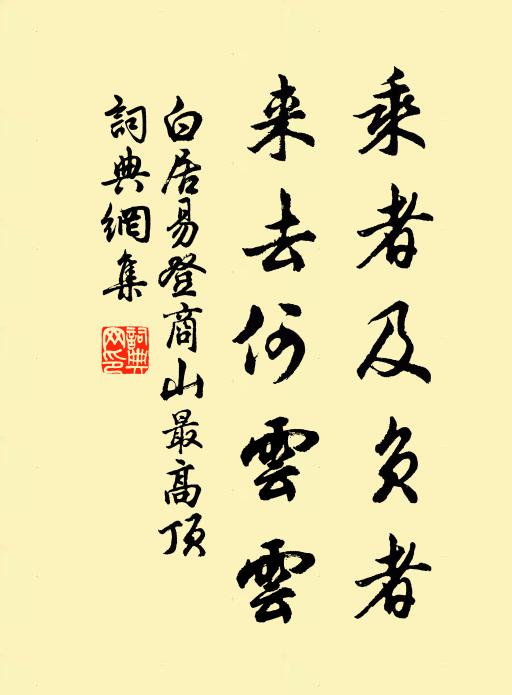 乘者及负者
来去何雲雲
白居易登商山最高顶
詞典網集
詞典
网印